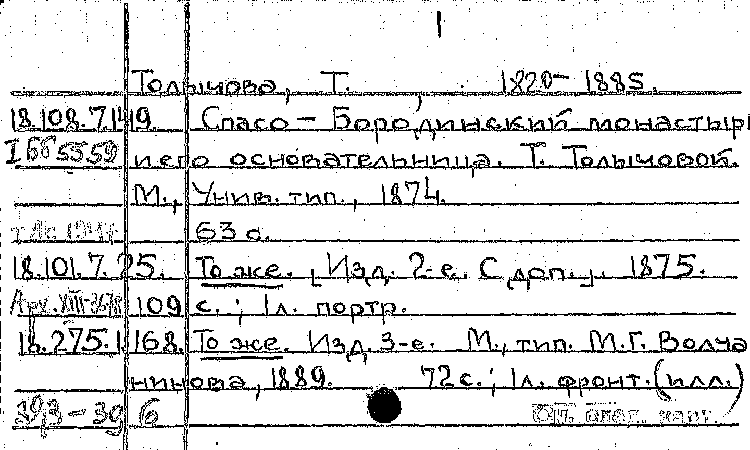 Толычова, Т. , 1820-1885.
18.108.7.149. Спасо-Бородинский монастырь
I 665559 и его основательница. Т. Толычовой.
М., Унив. тип., 1874.
63 с.
18.101.7.25. То же. [Изд. 2-е. С доп.]. 1875.
109 с.; 1 л. портр.
18.275.1.168. То же. Изд. 3-е. М., тип. М.Г. Волча
нинова, 1889. 72 с.; 1 л. фронт. (илл.)
393-396